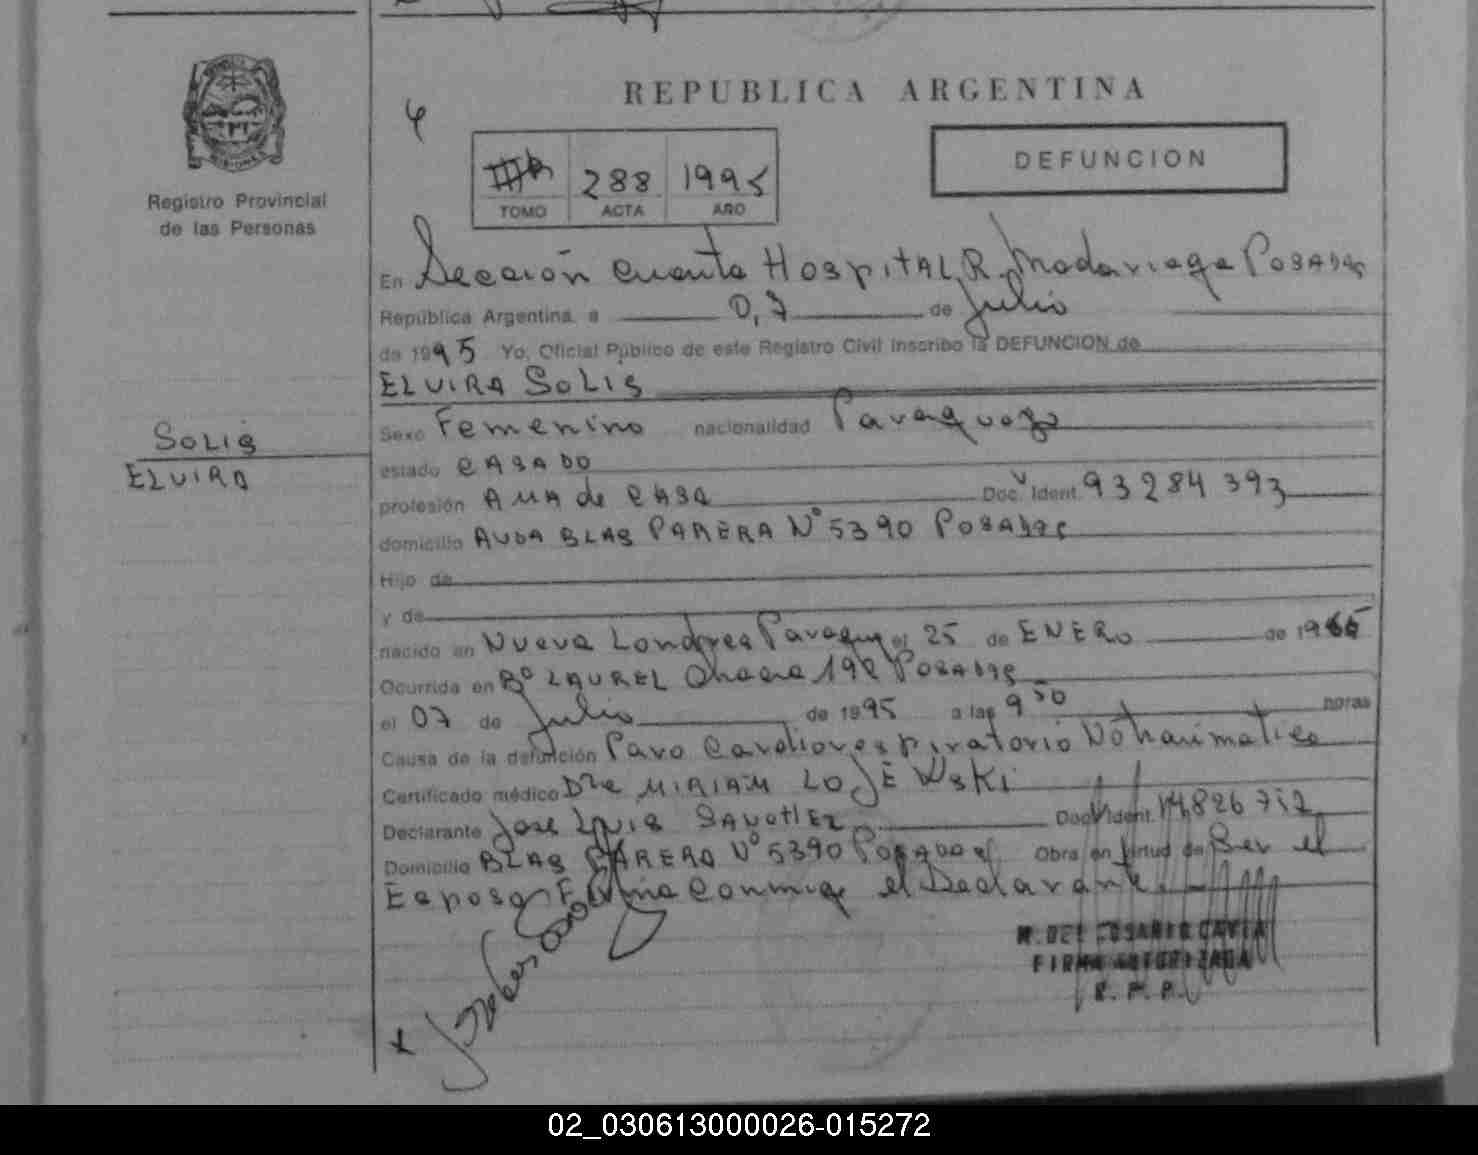 REPUBLICA ARGENTINA
DEFUNCION
4
288 1995
TOMO ACTA AÑO
Registro Provincial
de las Personas
En Sección Cuarta HOSPITAL R. Madariaga POSADAS
República Argentina, a 07 de Julio
de 1995 Yo, Oficial Público de este Registro Civil inscribo la DEFUNCION de
ELVIRA SOLIS
SOLIS
ELVIRA
Sexo Femenino nacionalidad Paraguaya
estado CASADO
profesión AMA de CASA Doc. Ident. 93284393
domicilio AVDA BLAS PARERA Nº 5390 POSADAS
Hijo de
y de
nacido en Nueva Londres Paraguay el 25 de ENERO de 19
Ocurrida en Bº LAUREL Chacra 192 POSADAS
el 07 de Julio de 1995 a las 9 50 horas
Causa de la defunción Paro Cardiorespiratorio No traumatico
Certificado médico Dra MIRIAM LOJEWSKI
Declarante Jose Luis Doc. Ident. 14826712
Domicilio BLAS PARERA Nº 5390 POSADAS Obra en virtud de Ser el
Esposo Firma conmigo el Declarante.
M. DEL ROSARIO CAVIA
FIRMA AUTORIZADA
R. P. P.
02_030613000026-015272